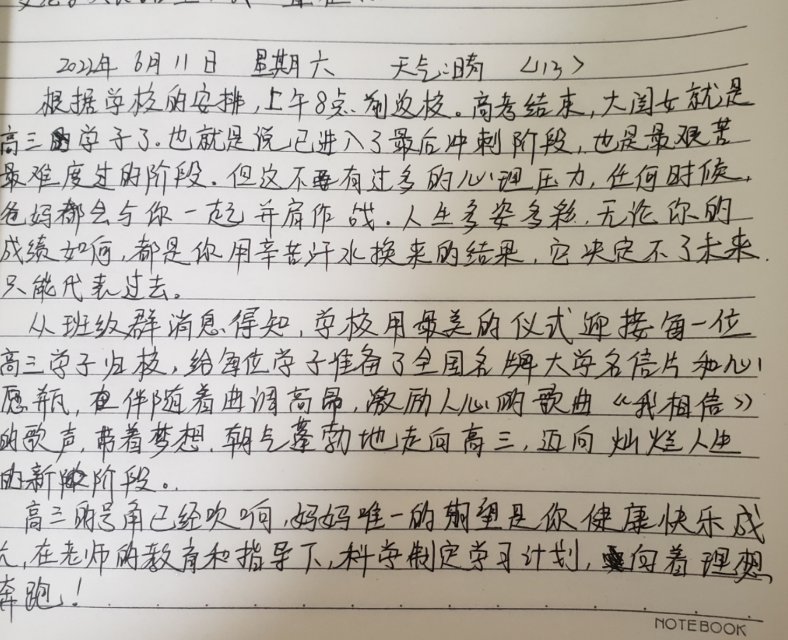 2022年6月11日 星期六 天气:晴 <113>
根据学校的安排,上午8点前返校。高考结束,大闺女就是
高三的学子了。也就是说已进入了最后冲刺阶段,也是最艰苦
最难度过的阶段。但这不要有过多的心理压力,任何时候,
爸妈都会与你一起并肩作战。人生多姿多彩,无论你的
成绩如何,都是你用辛苦汗水换来的结果,它决定不了未来,
只能代表过去。
从班级群消息得知,学校用最美的仪式迎接每一位
高三学子归校,给每位学子准备了全国名牌大学名信片和心
愿瓶,在伴随着曲调高昂,激励人心的歌曲《我相信》
的歌声,带着梦想,朝气蓬勃地走向高三,迈向灿烂人生
的新阶段。
高三的号角已经吹响,妈妈唯一的期望是你健康快乐成
长,在老师的教育和指导下,科学制定学习计划,向着理想
奔跑!
NOTEBOOK